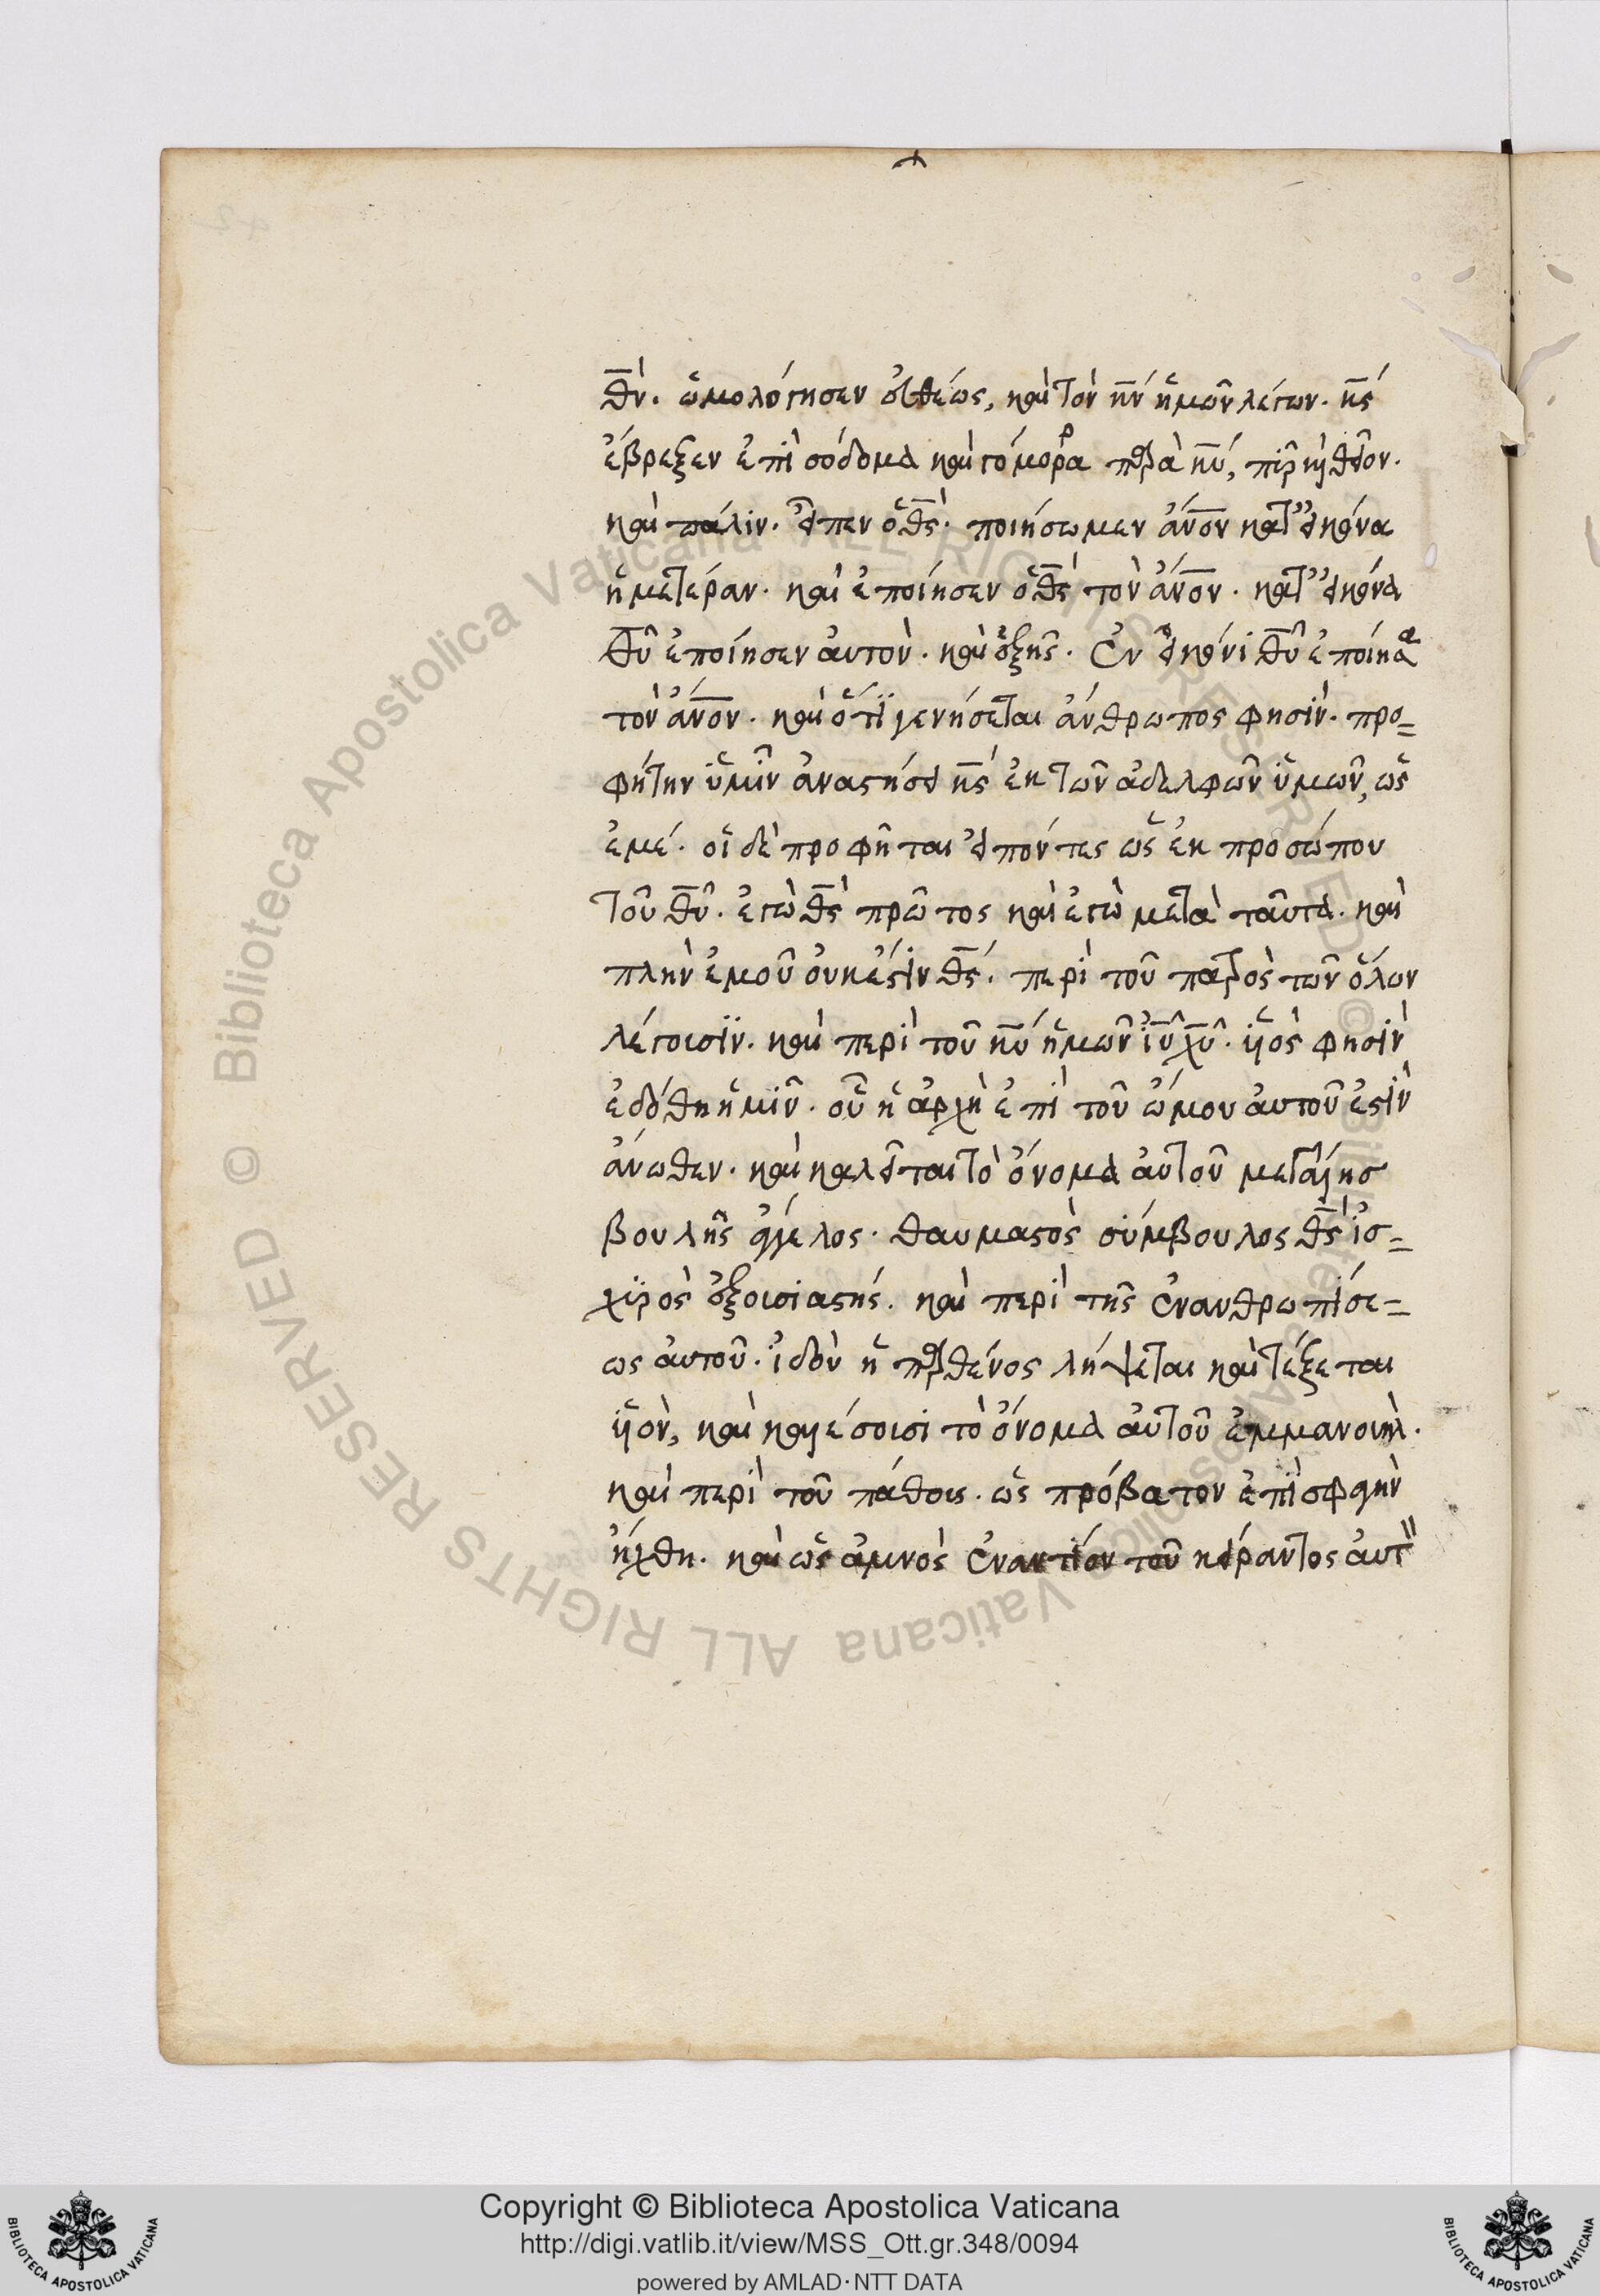 θ̅ν̅. ὡμολόγησεν εὐθέως, καὶ τὸν κ̅ν̅ ἡμῶν λέγων. κ̅ς̅
ἔβρεξεν ἐπὶ σόδομα καὶ γόμορρα παρὰ κ̅υ̅, πῖρ καὶ θεῖον.
καὶ πάλιν. εἶπεν ὁ θ̅ς̅. ποιήσωμεν ἄν̅ο̅ν̅ κατ' εἰκόνα
ἡμετέραν. καὶ ἐποίησεν ὁ θ̅ς̅ τὸν ἄν̅ο̅ν̅. κατ' εἰκόνα
θ̅υ̅ ἐποίησεν ἀυτὸν. καὶ ἑξῆς. Ἐν εἰκόνι θ̅υ̅ ἐποίησα
τὸν ἄν̅ο̅ν̅. καὶ ὅτϊ γενήσεται ἄνθρωπος φησὶν. προ=
φήτην ὑμῖν ἀναστήσει κ̅ς̅ ἐκ τῶν ἀδελφῶν ὑμῶν, ὡς
ἐμέ. οἱ δὲ προφῆται εἰπόντες ὡς ἐκ προσώπου
τοῦ θ̅υ̅. ἐγὼ θ̅ς̅ πρῶτος καὶ ἐγὼ μετὰ ταῦτα. καὶ
πλὴν ἐμοῦ ὀυκ ἔστιν θ̅ς̅. περὶ τοῦ πατρὸς τῶν ὅλων
λέγουσϊν. καὶ περὶ τοῦ κ̅υ̅ ἡμῶν ἰ̅υ̅ χ̅υ̅. ὑιὸς φησὶν
ἐδόθη ἡμῖν. οὗ ἡ ἀρχὴ ἐπὶ τοῦ ὤμου ἀυτοῦ ἐστὶν
ἄνωθεν. καὶ καλεῖται τὸ ὄνομα ἀυτοῦ μεγάλης
βουλῆς ἄγγελος. θαυμαστὸς σύμβουλος θ̅ς̅ ἰσ=
χϊρὸς ἐξουσιαστής. καὶ περὶ τῆς ἐνανθρωπίσε=
ως ἀυτοῦ. ἰδοὺ ἡ παρθένος λήψεται καὶ τέξεται
ὑιὸν, καὶ καλέσουσι τὸ ὄνομα ἀυτοῦ ἐμμανουὴλ.
καὶ περὶ τοῦ πάθους. ὡς πρόβατον ἐπϊ σφαγὴν
ἤχθη. καὶ ὡς ἀμνὸς ἐναντίον τοῦ κείραντος ἀυτ
Copyright © Biblioteca Apostolica Vaticana
http://digi.vatlib.it/view/MSS_Ott.gr.348/0094
powered by AMLAD·NTT DATA